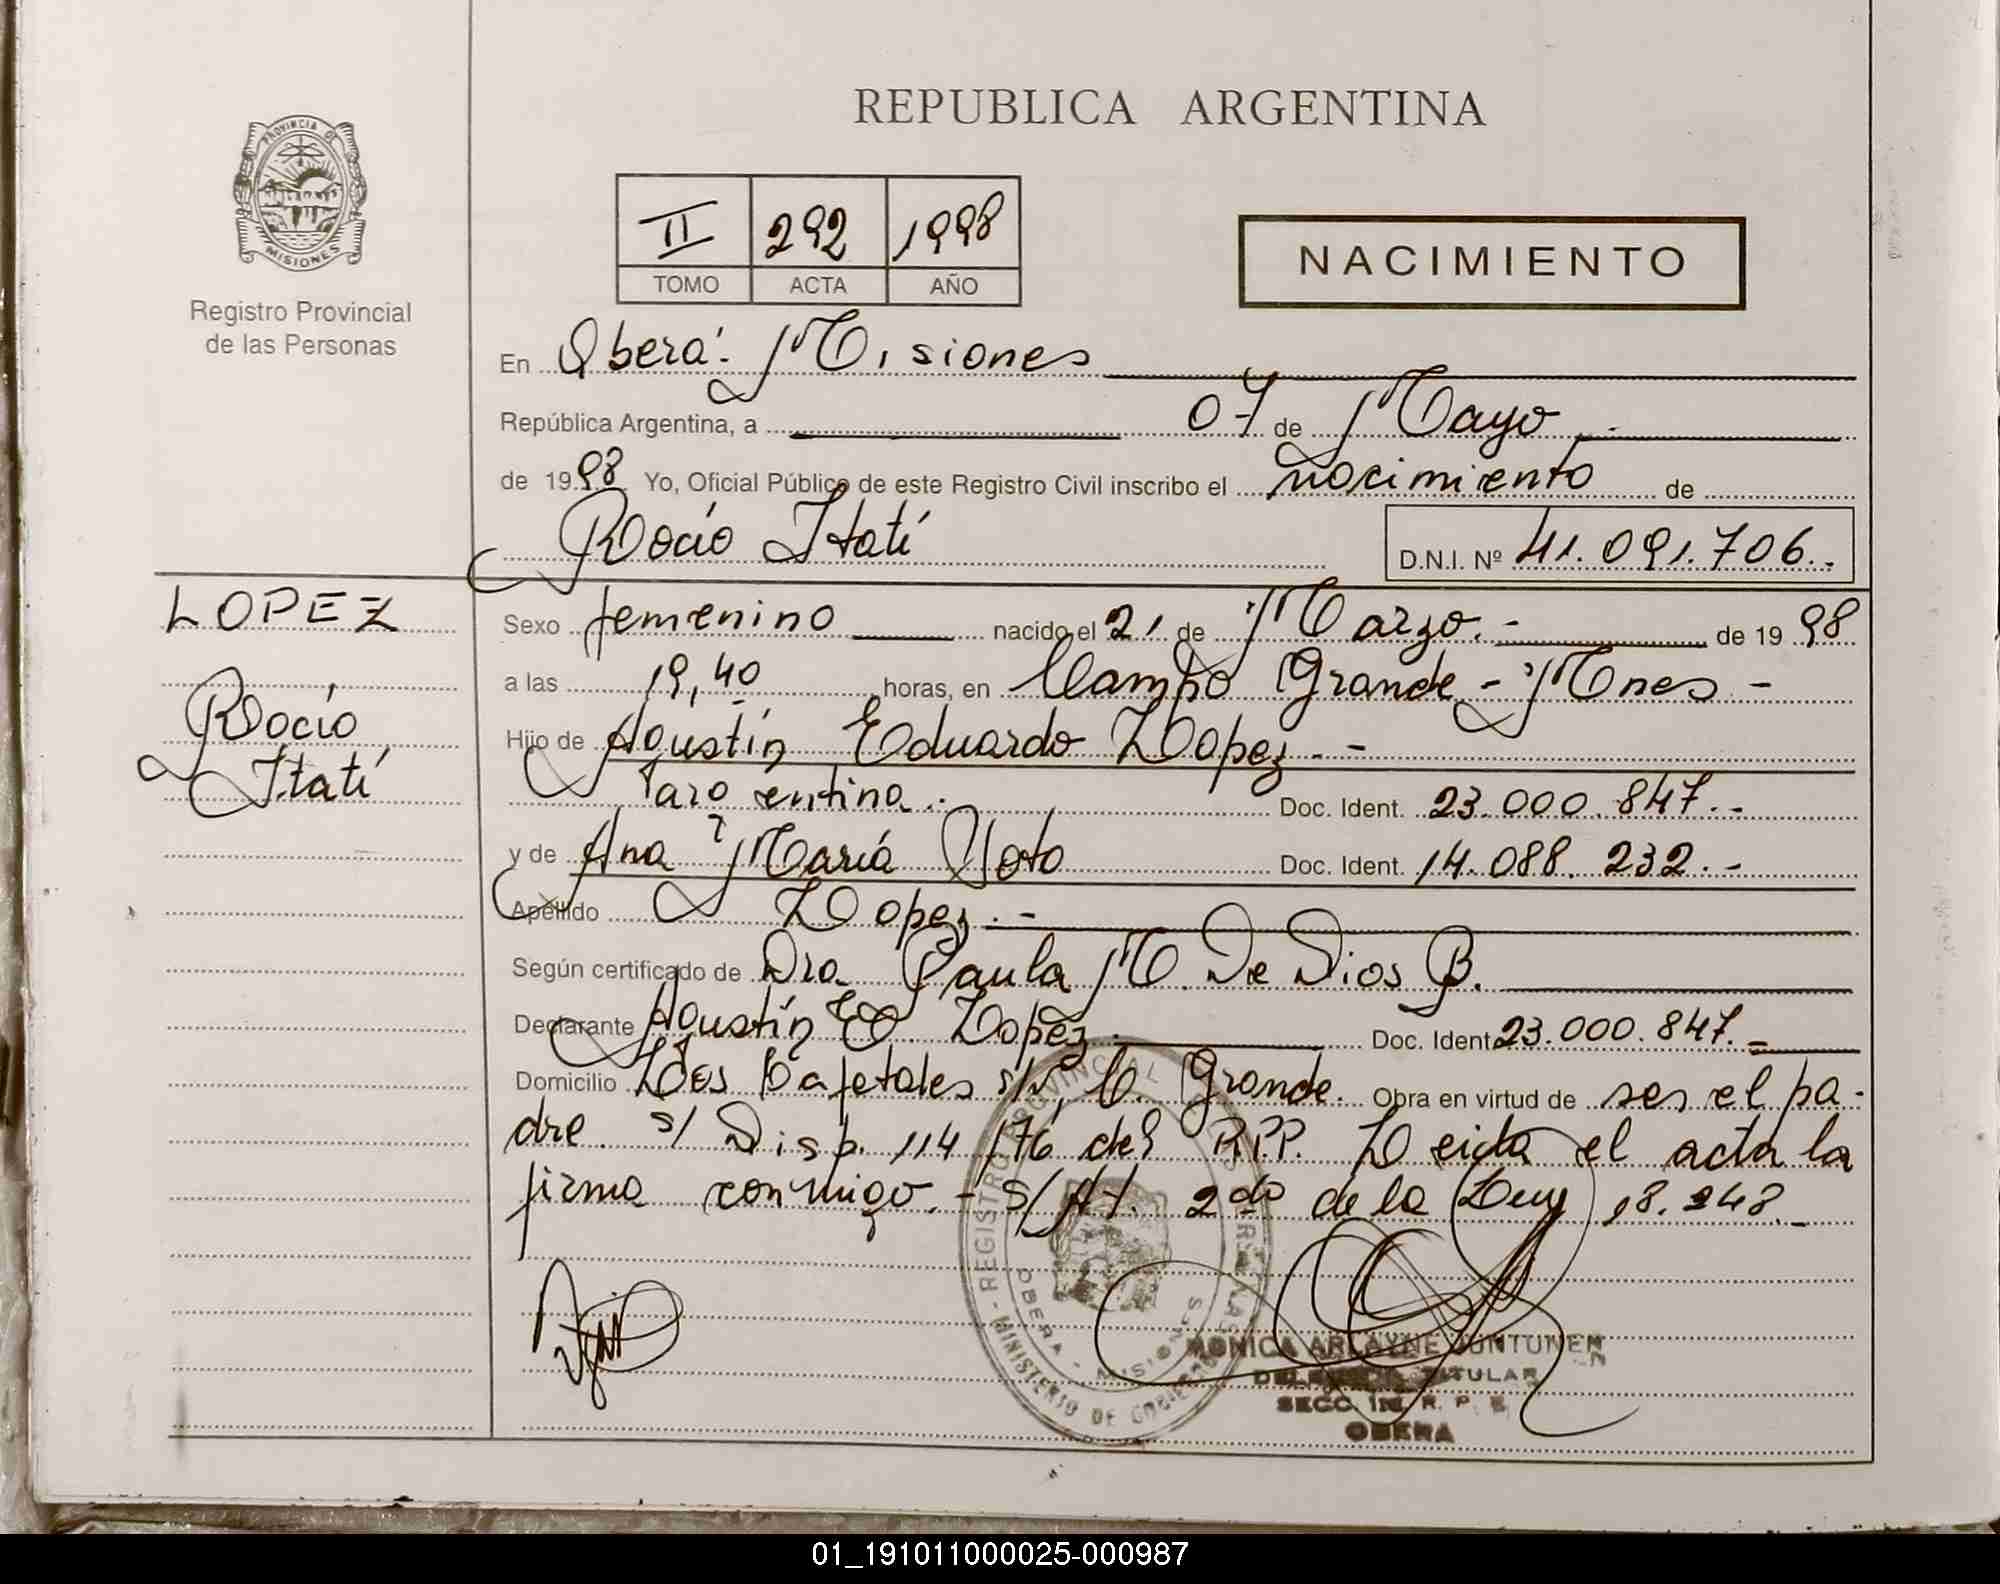 REPUBLICA ARGENTINA
PROVINCIA DE
MISIONES
Registro Provincial
de las Personas
II 292 1998
TOMO ACTA AÑO
NACIMIENTO
En Oberá. Misiones
República Argentina, a 07 de Mayo
de 1998 Yo, Oficial Público de este Registro Civil inscribo el nacimiento de
Rocío Itatí D.N.I. Nº 41.091.706.
LOPEZ
Rocío
Itatí
Sexo femenino nacido el 21 de Marzo.- de 19 98
a las 19,40 horas, en Campo Grande - Mnes -
Hijo de Agustín Eduardo Lopez.-
argentina. Doc. Ident. 23.000.847.-
y de Ana María Doc. Ident. 14.088.232.-
Apellido Lopez.-
Según certificado de Dra. Paula M. De Dios B.
Declarante Agustín E. Lopez. Doc. Ident. 23.000.847.-
Domicilio Los Cafetales s/n, C. Grande. Obra en virtud de ser el pa-
dre. s/ Disp. 114/76 del R.P.P. Leida el acta la
firma conmigo.- S/At. 2do de la Ley 18.248.-
REGISTRO PROVINCIAL DE LAS PERSONAS
MINISTERIO DE GOBIERNO
OBERA - MISIONES
MONICA ARLAYNE JUNTUNEN
TITULAR
SECC. R. P.
OBERA
01_191011000025-000987